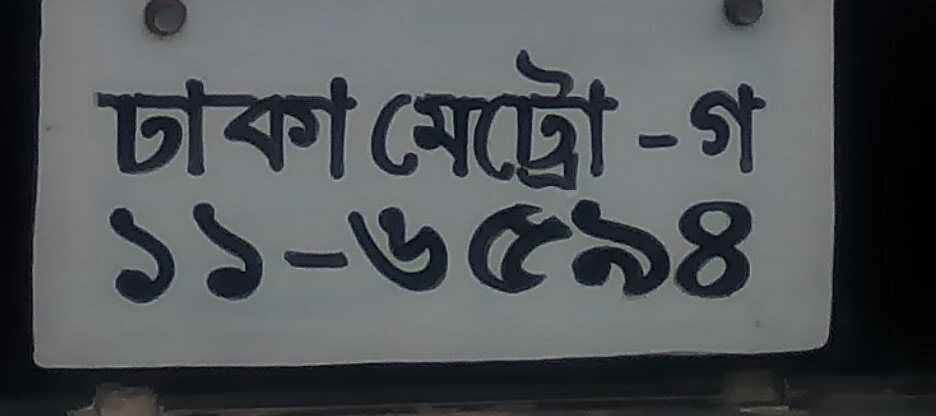 ঢাকা মেট্রো - গ
১১-৬৫৯৪